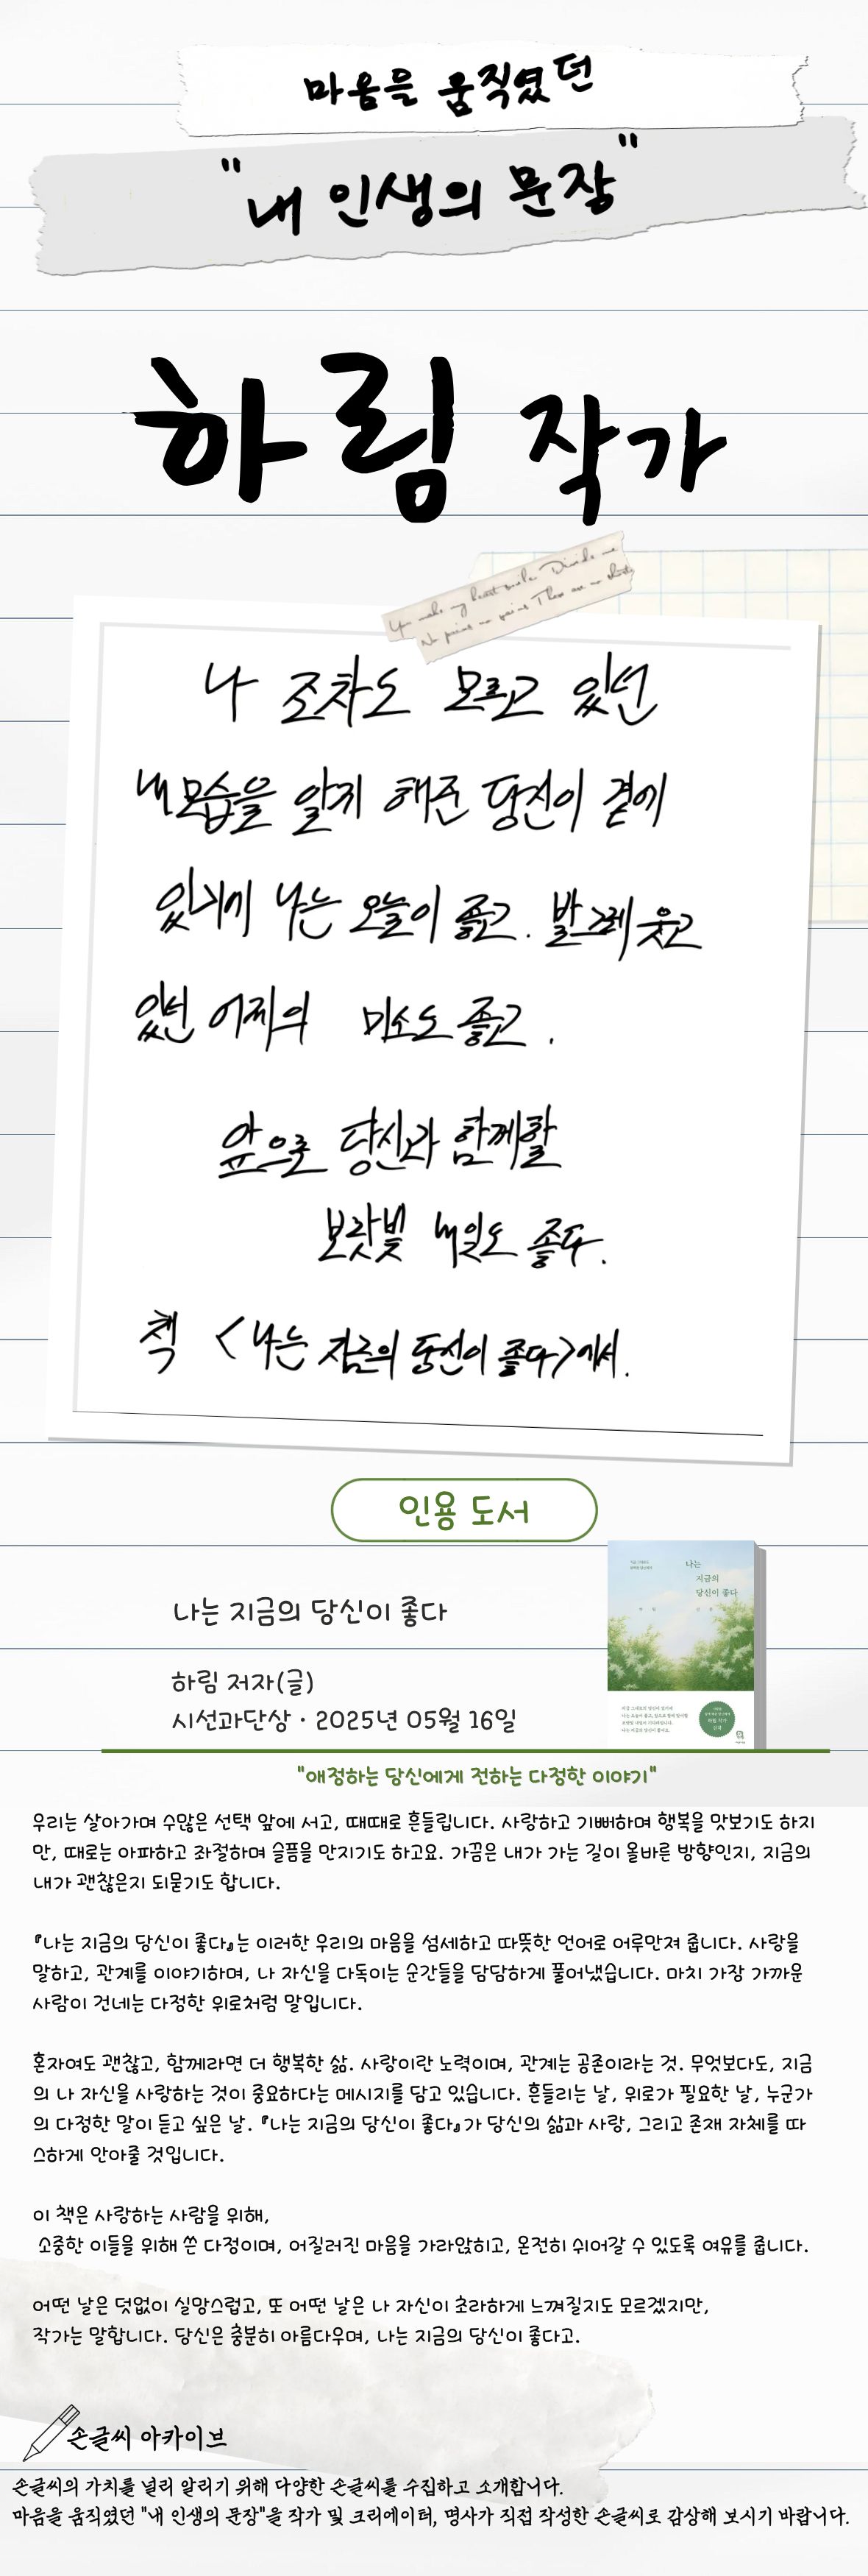 마음을 움직였던
"내 인생의 문장"
하림 작가
You make my heart smile. Divide me
No pains no gains There are no shorts
나 조차도 모르고 있던
내 모습을 알게 해준 당신이 곁에
있기에 나는 오늘이 좋고. 발그레 웃고
있던 어제의 미소도 좋고.
앞으로 당신과 함께할
보랏빛 내일도 좋다.
책 <나는 지금의 당신이 좋다>에서.
인용 도서
나는
지금의
당신이 좋다
나는 지금의 당신이 좋다
하림 저자(글)
시선과단상 · 2025년 05월 16일
"애정하는 당신에게 전하는 다정한 이야기"
우리는 살아가며 수많은 선택 앞에 서고, 때때로 흔들립니다. 사랑하고 기뻐하며 행복을 맛보기도 하지
만, 때로는 아파하고 좌절하며 슬픔을 만지기도 하고요. 가끔은 내가 가는 길이 올바른 방향인지, 지금의
내가 괜찮은지 되묻기도 합니다.
『나는 지금의 당신이 좋다』는 이러한 우리의 마음을 섬세하고 따뜻한 언어로 어루만져 줍니다. 사랑을
말하고, 관계를 이야기하며, 나 자신을 다독이는 순간들을 담담하게 풀어냈습니다. 마치 가장 가까운
사람이 건네는 다정한 위로처럼 말입니다.
혼자여도 괜찮고, 함께라면 더 행복한 삶. 사랑이란 노력이며, 관계는 공존이라는 것. 무엇보다도, 지금
의 나 자신을 사랑하는 것이 중요하다는 메시지를 담고 있습니다. 흔들리는 날, 위로가 필요한 날, 누군가
의 다정한 말이 듣고 싶은 날. 『나는 지금의 당신이 좋다』가 당신의 삶과 사랑, 그리고 존재 자체를 따
스하게 안아줄 것입니다.
이 책은 사랑하는 사람을 위해,
소중한 이들을 위해 쓴 다정이며, 어질러진 마음을 가라앉히고, 온전히 쉬어갈 수 있도록 여유를 줍니다.
어떤 날은 덧없이 실망스럽고, 또 어떤 날은 나 자신이 초라하게 느껴질지도 모르겠지만,
작가는 말합니다. 당신은 충분히 아름다우며, 나는 지금의 당신이 좋다고.
손글씨 아카이브
손글씨의 가치를 널리 알리기 위해 다양한 손글씨를 수집하고 소개합니다.
마음을 움직였던 "내 인생의 문장"을 작가 및 크리에이터, 명사가 직접 작성한 손글씨로 감상해 보시기 바랍니다.